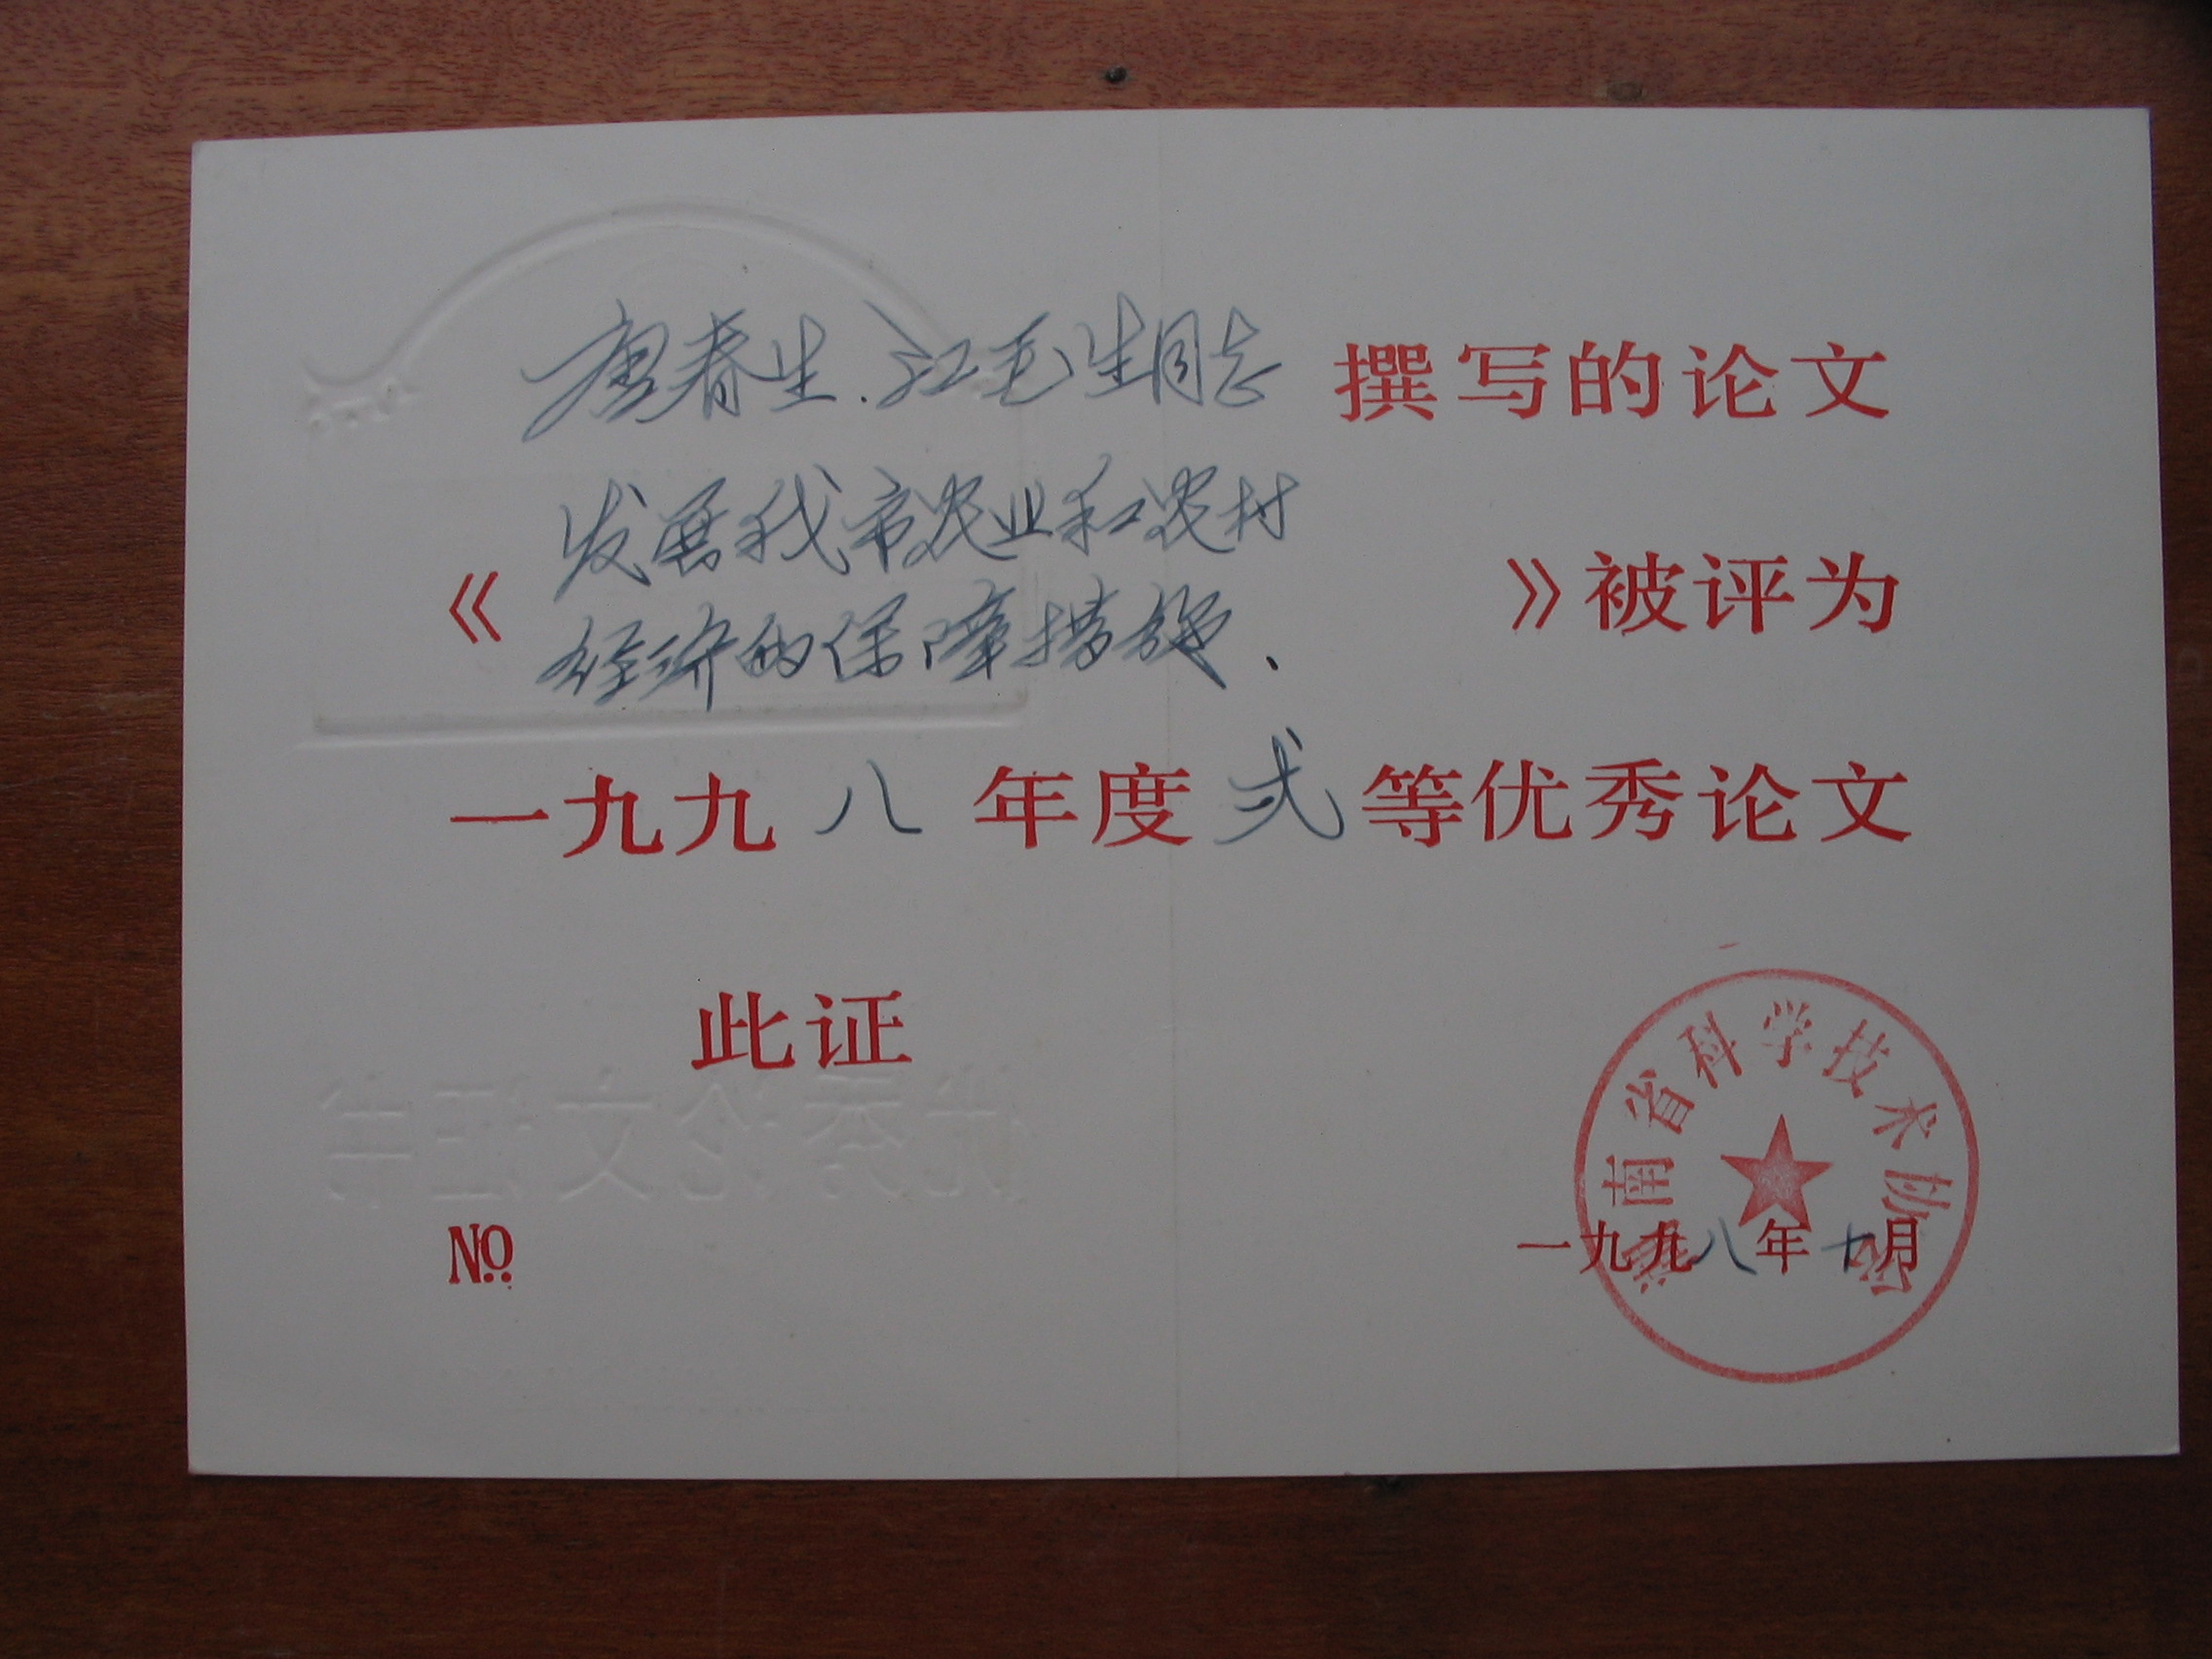 唐春生.江毛生同志 撰写的论文
《发展我市农业和农村
经济的保障措施.》被评为
一九九八年度弍等优秀论文
此证
优秀论文证书
湖南省科学技术协会
№
一九九八年十月